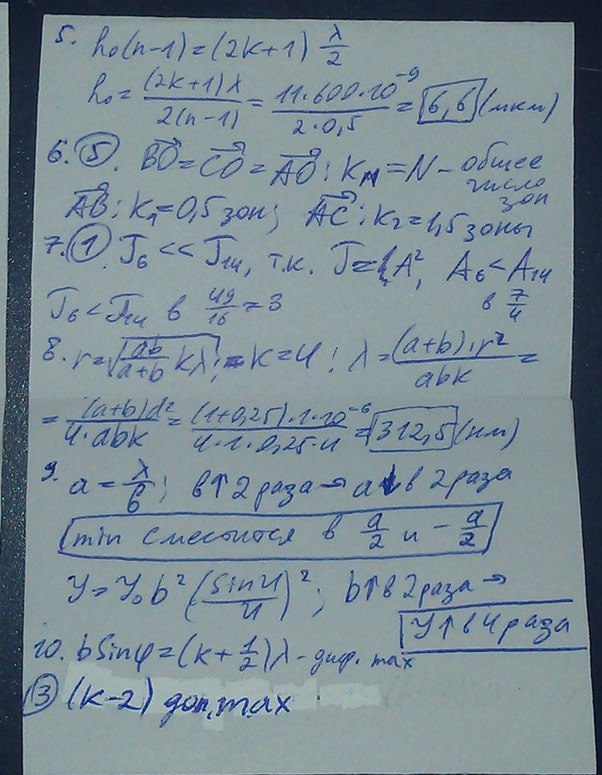 5. h₀(n-1)=(2k+1) λ/2
h₀= (2k+1)λ / 2(n-1) = 11·600·10⁻⁹ / 2·0,5 = 6,6 (мкм)
6. 5. BO=CO=AO: kм=N - общее число зон
AB: k₁=0,5 зон; AC: k₂=1,5 зоны
7. 1 J₆<<J₁₄, т.к. J=A², A₆<A₁₄ в 7/4
J₆<J₁₄ в 49/16=3
8. r=√(ab/(a+b) kλ); k=4; λ= (a+b)·r² / abk =
= (a+b)d² / 4·abk = (1+0,25)·1·10⁻⁶ / 4·1·0,25·4 = 312,5 (нм)
9. a=λ/b; b↑2 раза → a↓ в 2 раза
min сместится в a/2 и -a/2
У=У₀b²(sin u / u)²; b↑в 2 раза →
У↑в 4 раза
10. b sinφ=(k+1/2)λ - диф. max
3 (k-2) доп. max